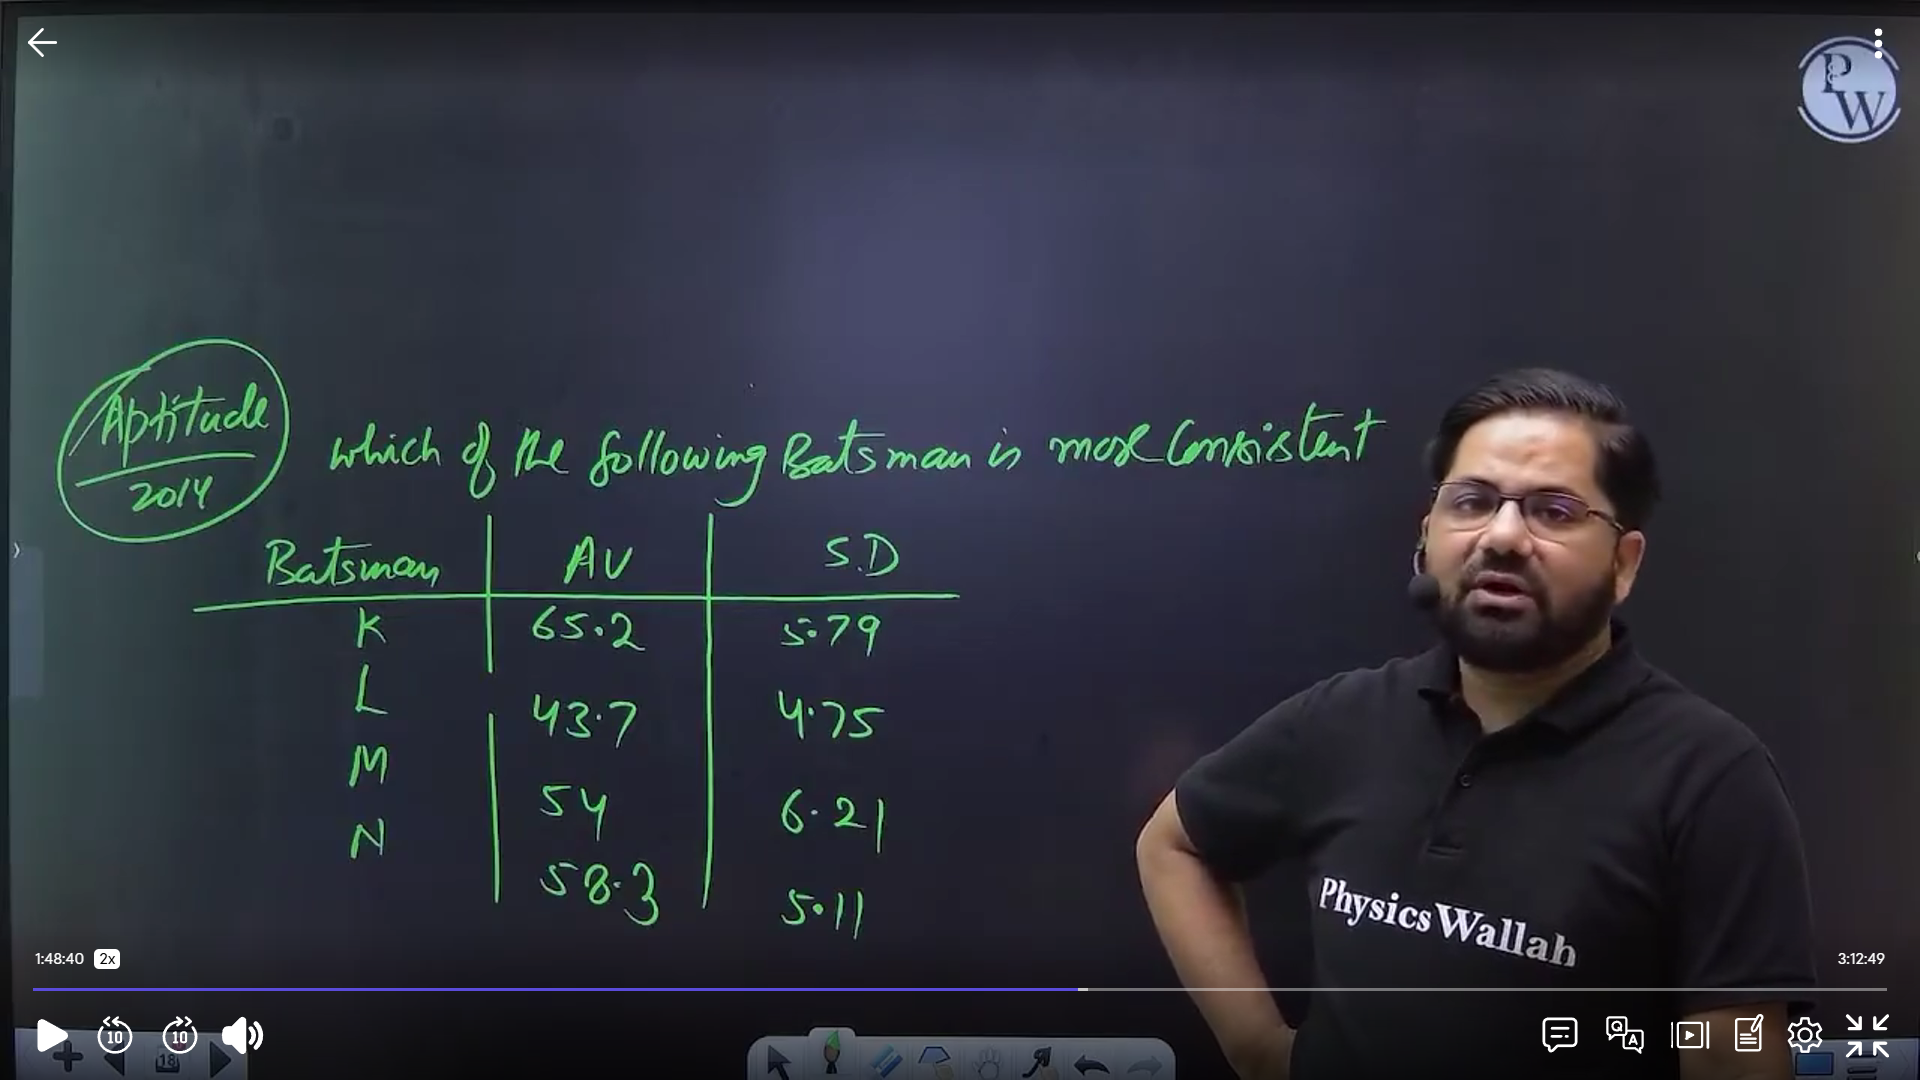 PW
Aptitude
2014
which of the following Batsman is most Consistent
Batsman AV S.D
K 65.2 5.79
L 43.7 4.75
M 54 6.21
N 58.3 5.11
Physics Wallah
1:48:40 2x 3:12:49
10 10
18